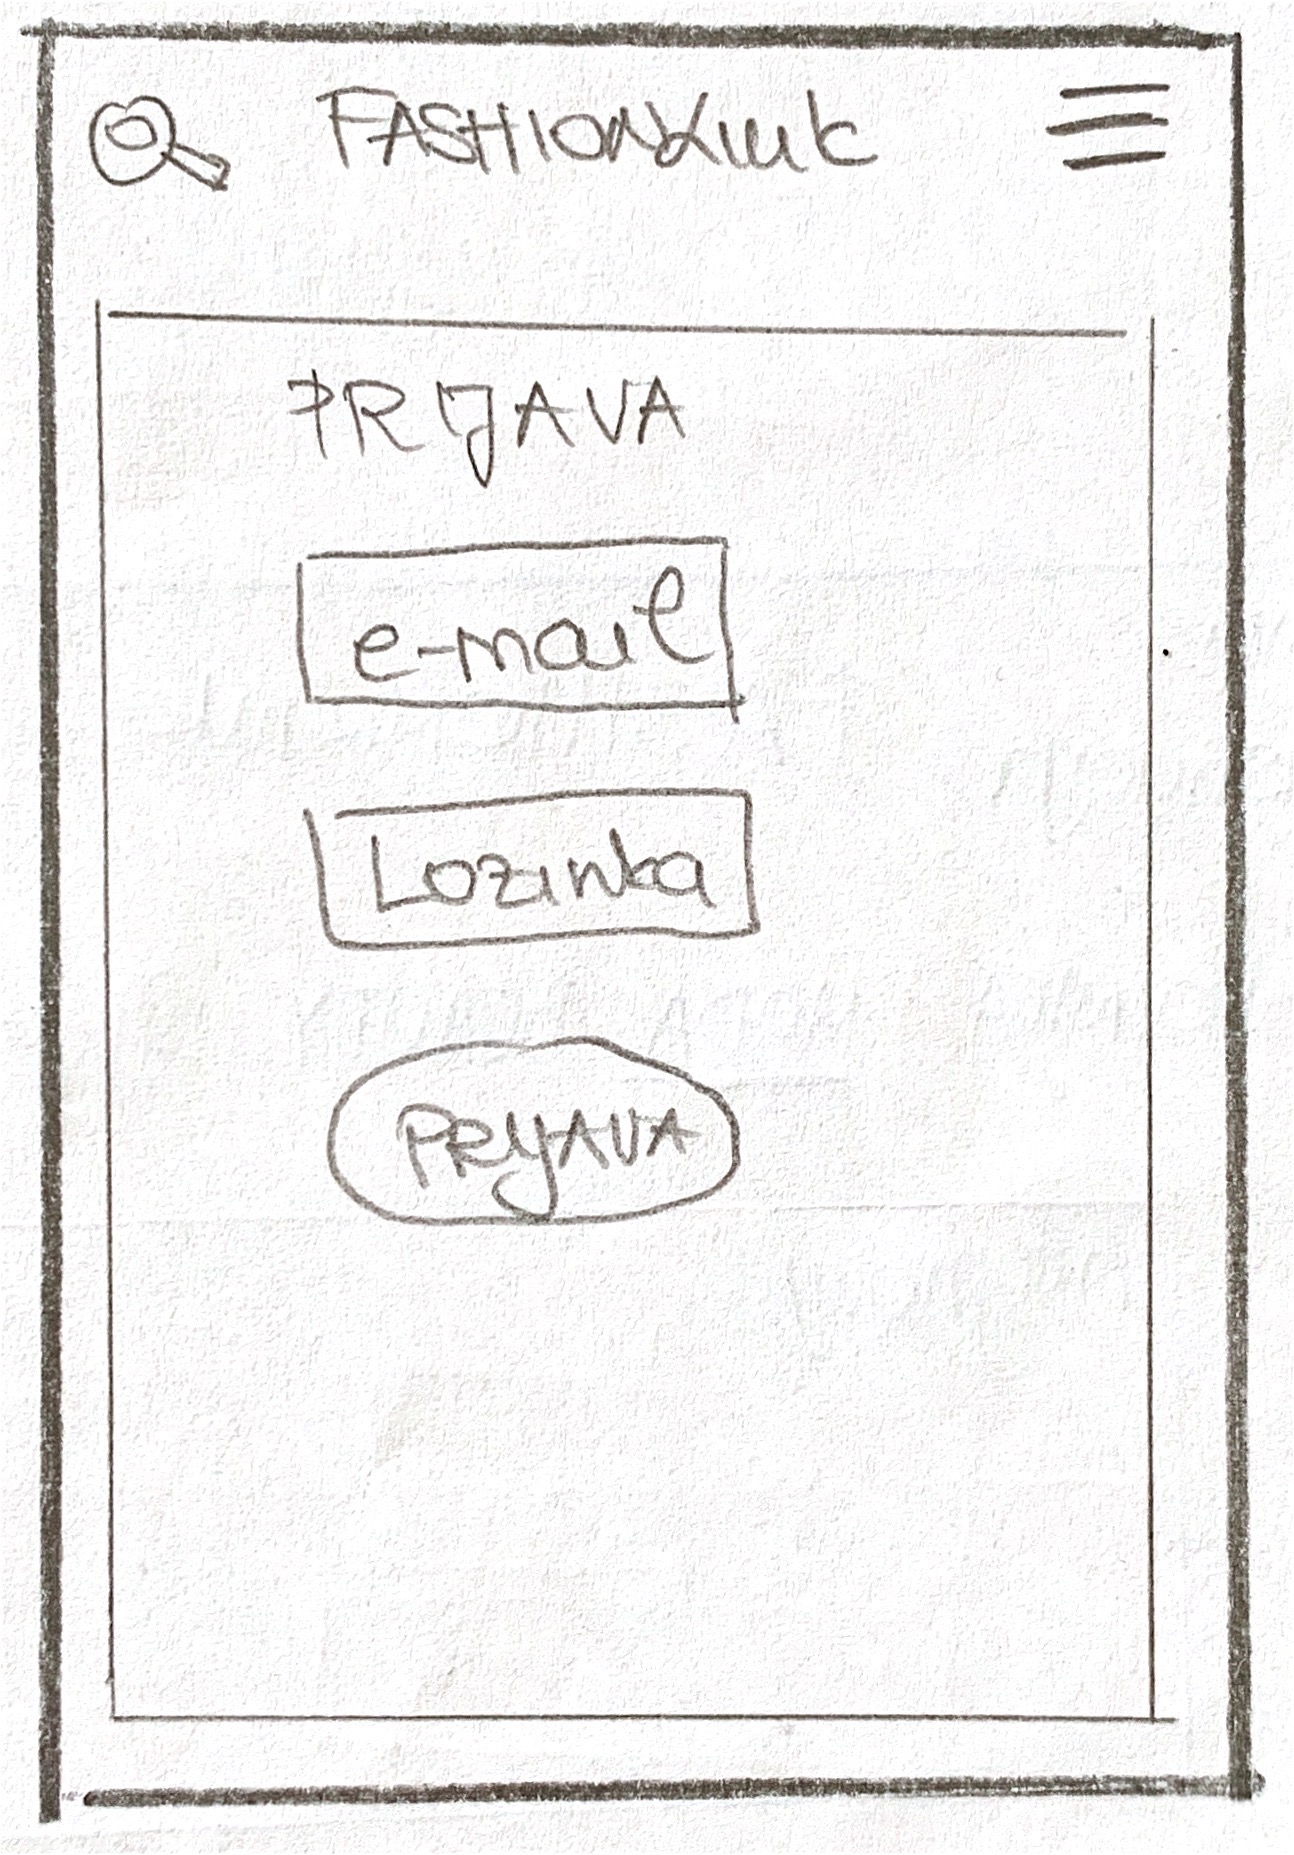 FASHIONLINK
PRIJAVA
e-mail
Lozinka
PRIJAVA